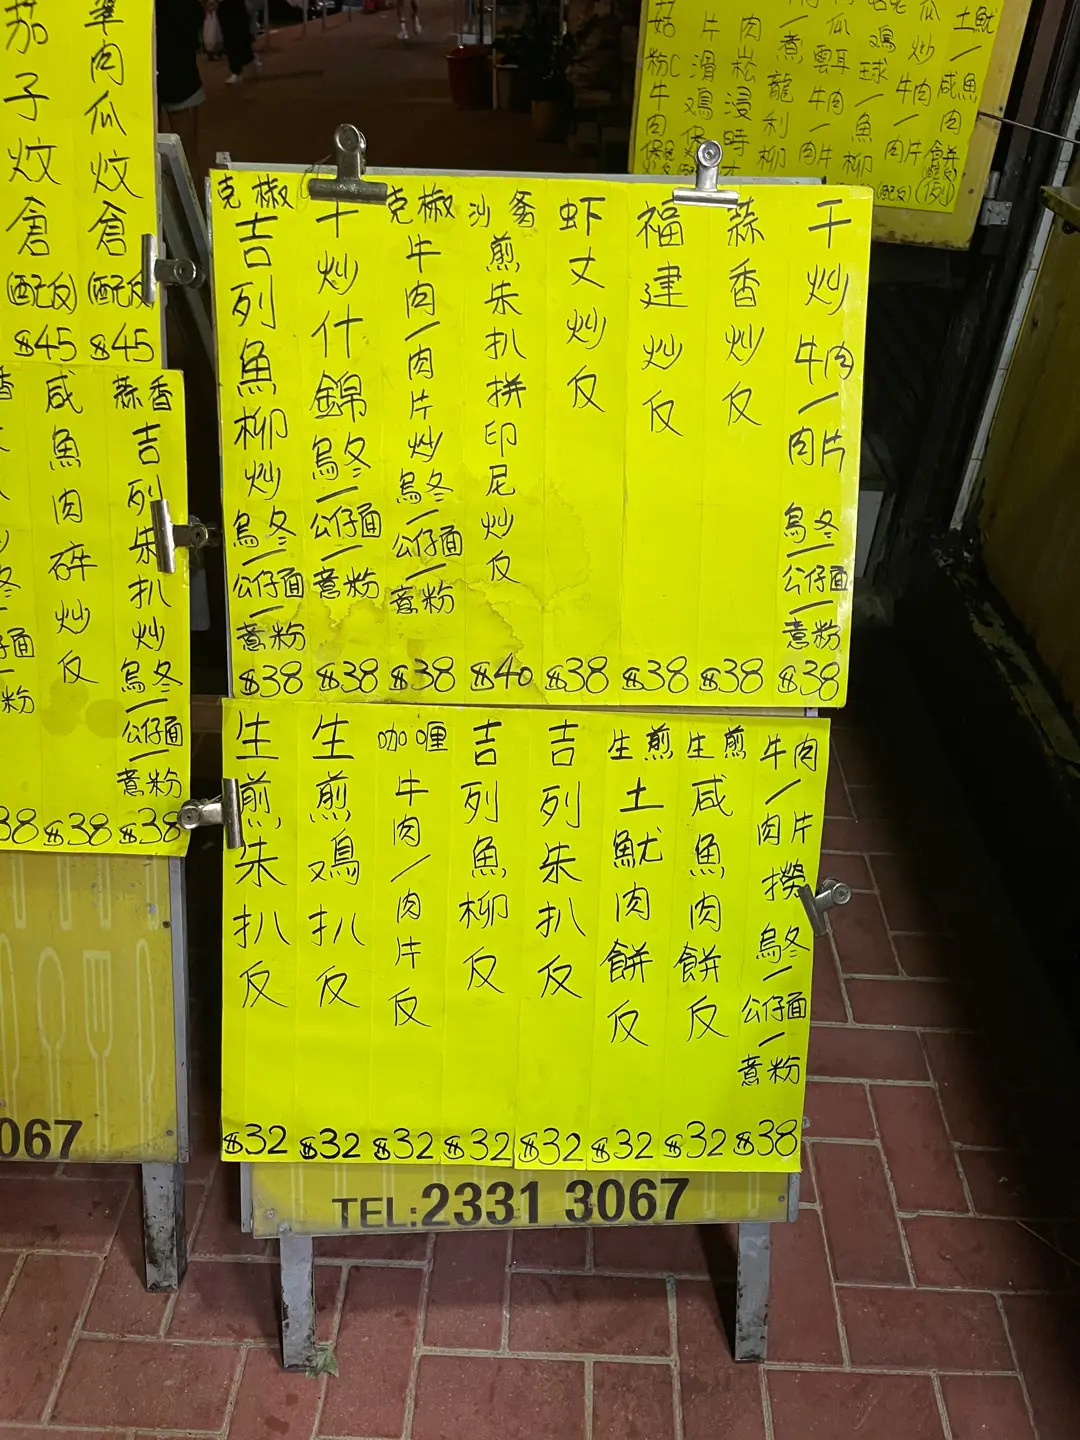 干炒牛肉/肉片烏冬/公仔面/薏粉 $38
蒜香炒反 $38
福建炒反 $38
虾丈炒反 $38
沙爹煎朱扒拼印尼炒反 $40
克椒牛肉/肉片炒烏冬/公仔面/薏粉 $38
干炒什錦烏冬/公仔面/薏粉 $38
克椒吉列魚柳炒烏冬/公仔面/薏粉 $38
牛肉/肉片撈烏冬/公仔面/薏粉 $38
生煎咸魚肉餅反 $32
生煎土魷肉餅反 $32
吉列朱扒反 $32
吉列魚柳反 $32
咖喱牛肉/肉片反 $32
生煎鸡扒反 $32
生煎朱扒反 $32
TEL:2331 3067
肉瓜炆倉(配反) $45
茄子炆倉(配反) $45
蒜香吉列朱扒炒烏冬/公仔面/薏粉 $38
咸魚肉碎炒反 $38
香
粉
38
067
土魷/咸魚肉餅
瓜炒牛肉/肉片(配反)
鸡球/魚柳
瓜雲耳牛肉/肉片
煮龍利柳
肉崧浸時
片滑鸡煲
菇粉
牛肉煲